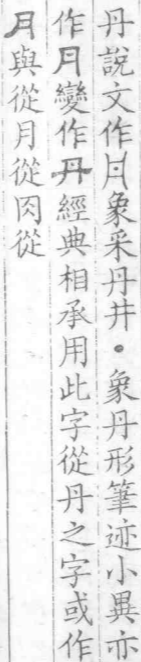 丹說文作𠁿象采丹井●象丹形筆迹小異亦
作⺝變作丹經典相承用此字從丹之字或作
月與從月從肉從